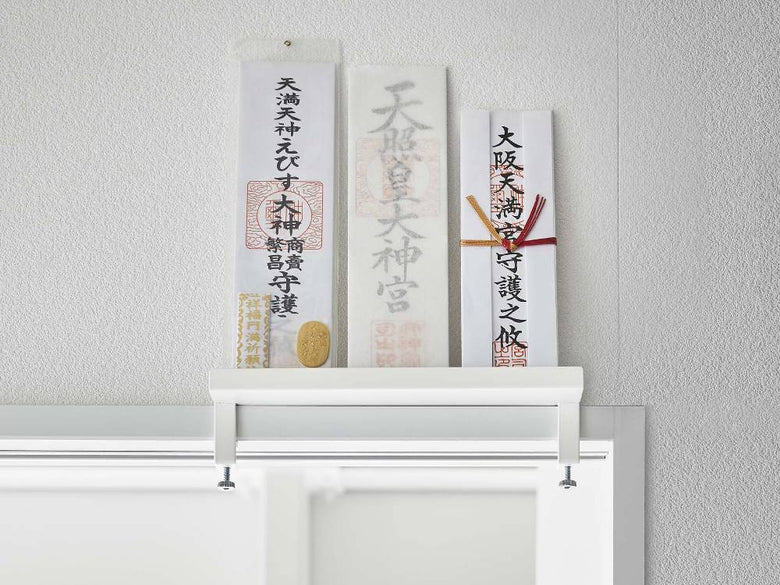 天満天神えびす大神
商賣
繁昌
守護之攸
天照皇大神宮
大阪天満宮守護之攸